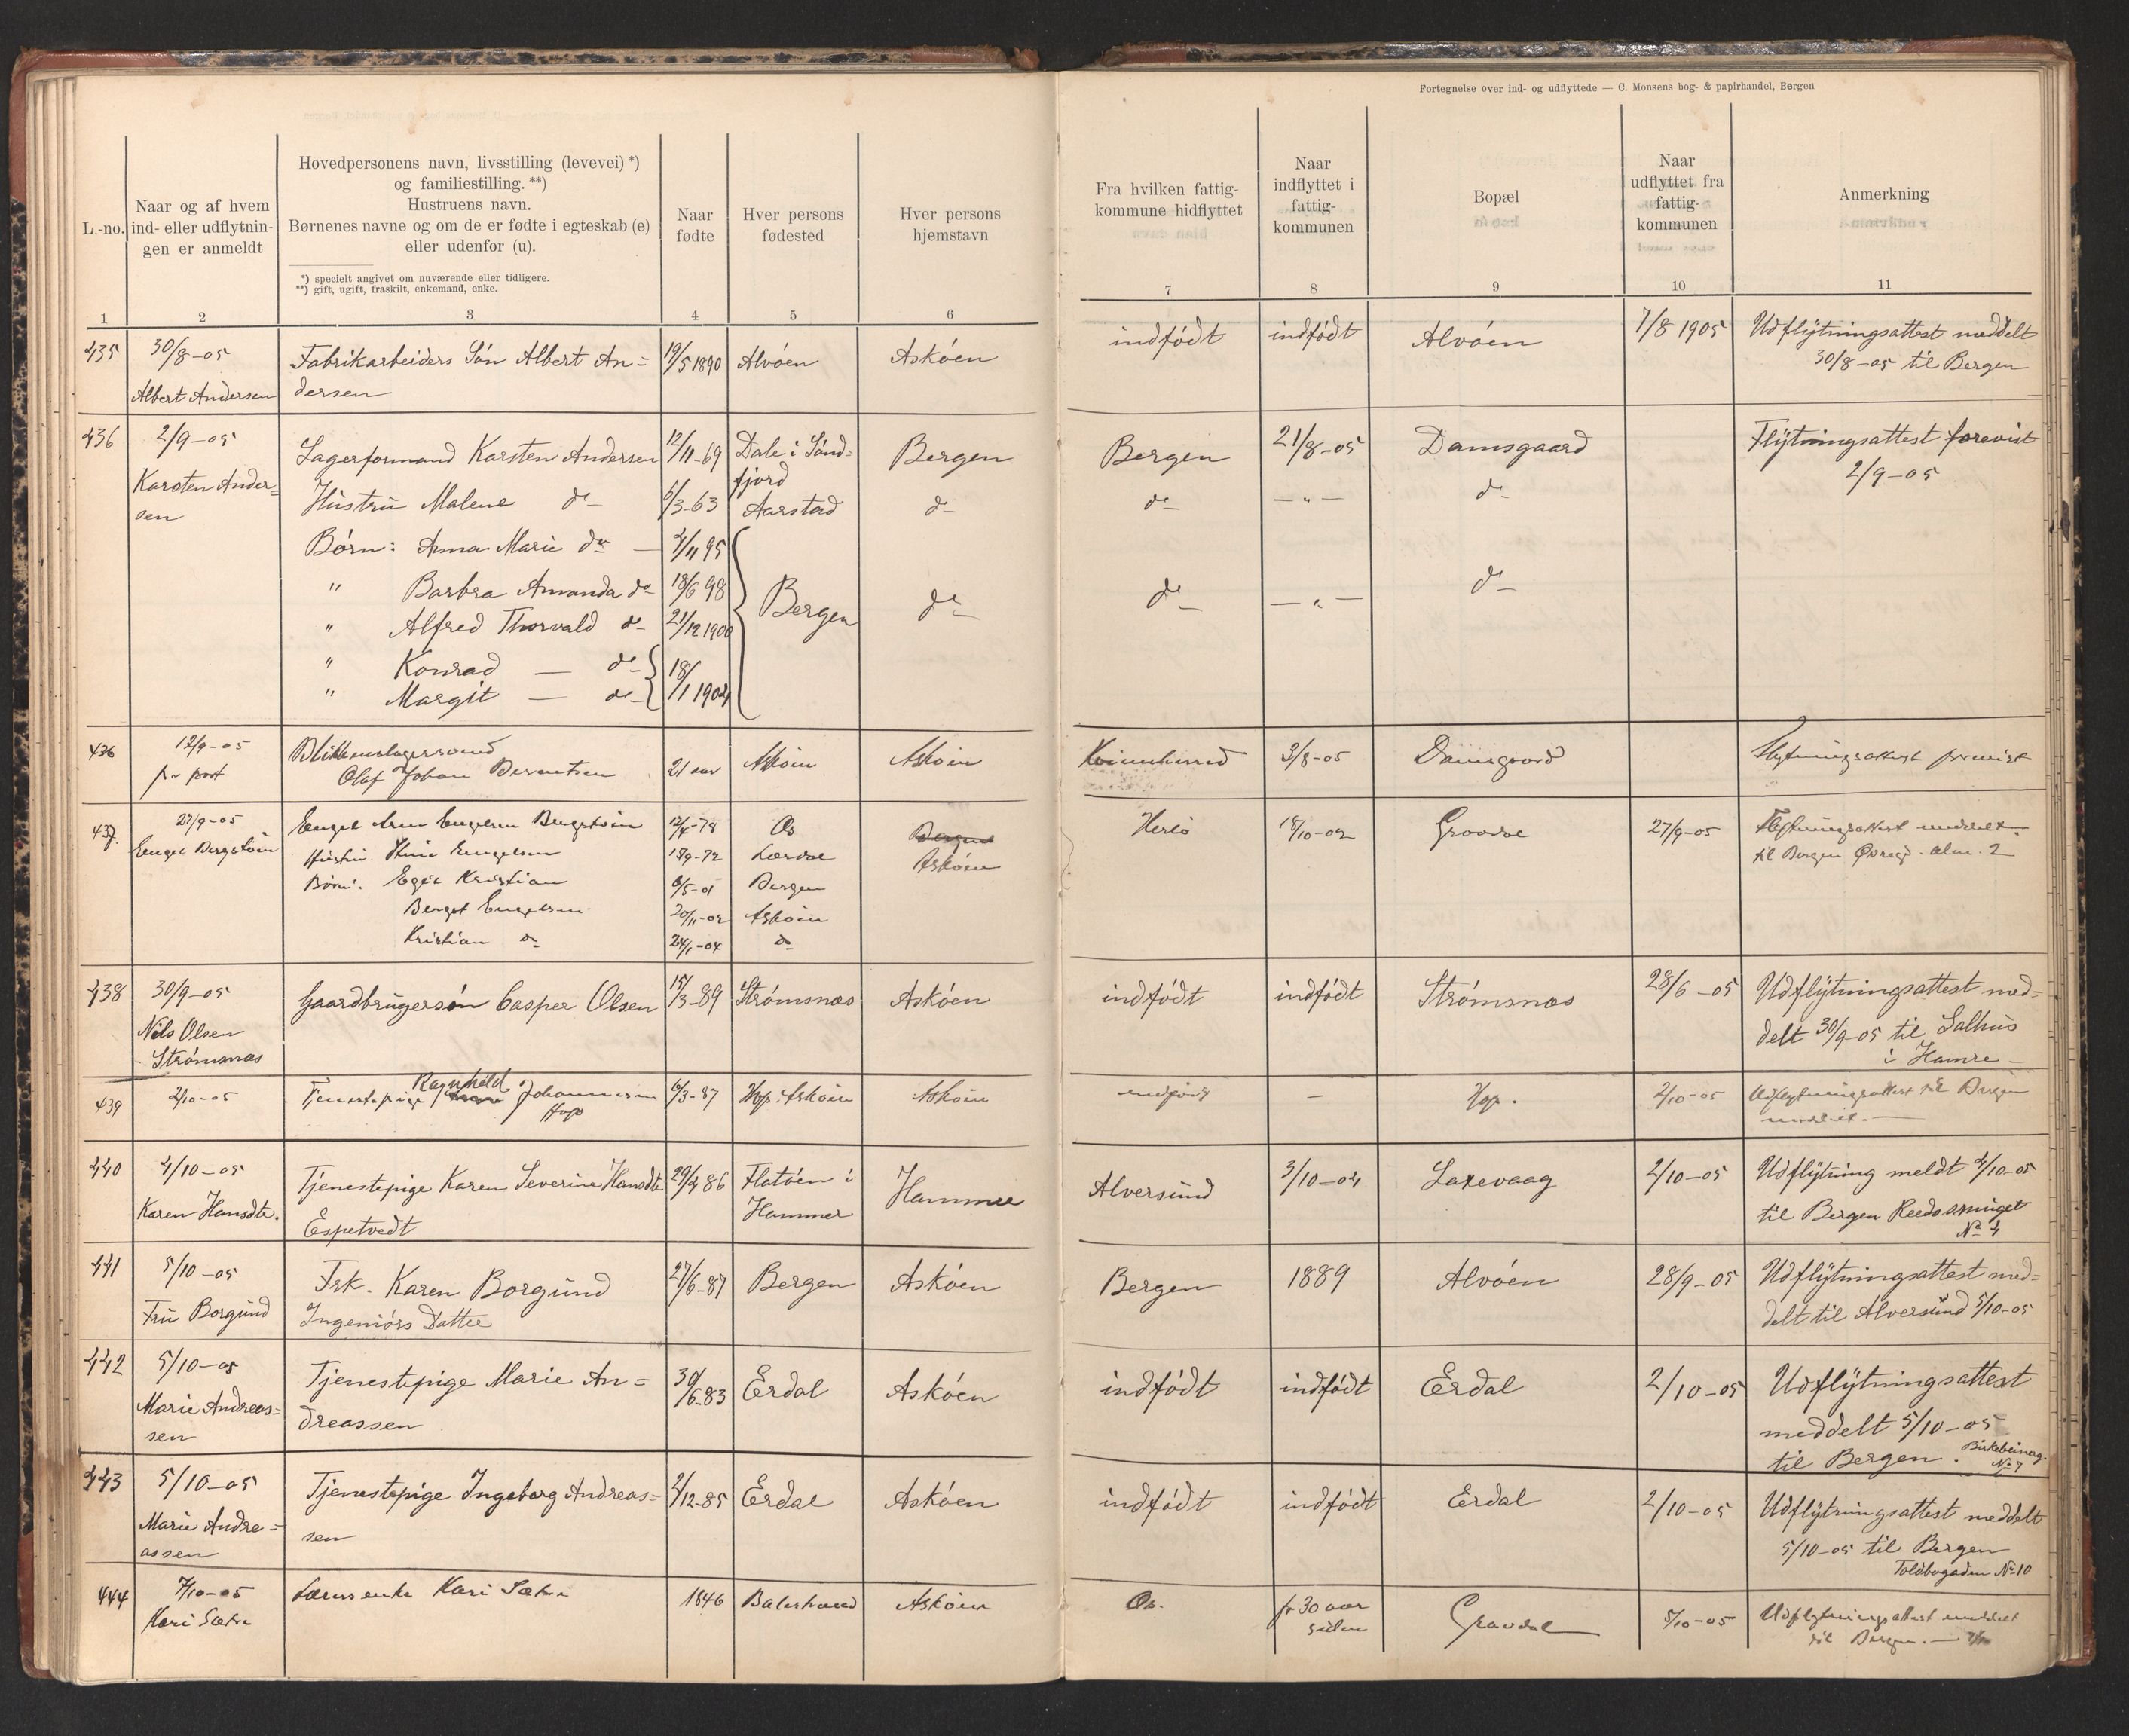 Fortegnelse over ind- og udflyttede — C. Monsens bog- & papirhandel, Bergen
L.-no.
Naar og af hvem
ind- eller udflytnin-
gen er anmeldt
Hovedpersonens navn, livsstilling (levevei) *)
og familiestilling. **)
Hustruens navn.
Børnenes navne og om de er fødte i egteskab (e)
eller udenfor (u).
*) specielt angivet om nuværende eller tidligere.
**) gift, ugift, fraskilt, enkemand, enke.
Naar
fødte
Hver persons
fødested
Hver persons
hjemstavn
Fra hvilken fattig-
kommune hidflyttet
Naar
indflyttet i
fattig-
kommunen
Bopæl
Naar
udflyttet fra
fattig-
kommunen
Anmerkning
1 2 3 4 5 6 7 8 9 10 11
435 30/8-05 Fabrikarbeiders Søn Albert An= 19/5 1890 Alvøen Askøen indfødt indfødt Alvøen 7/8 1905 Udflytningsattest meddelt
Albert Andersen dersen 30/8-05 til Bergen
436 2/9-05 Lagerformand Karsten Andersen 12/11-69 Dale i Sønd= Bergen Bergen 21/8-05 Damsgaard Flytningsattest forevist
Karsten Ander= fjord 2/9-05
sen Hustru Malene do 6/3-63 Aarstad do do — " — do
Børn: Anna Marie do — 4/11 95
" Barbra Amanda do 18/6 98 Bergen do do — " — do
" Alfred Thorvald do 21/12 1900
" Konrad — do 18/
" Margit — do /1 1904
436 12/9-05 Blikkenslagersvend
pr post Olaf Johan Berentsen 21 aar Askøen Askøen Kvinnherred 3/8-05 Damsgaard Flytningsattest forevist
437. 27/9-05 Engel Bergstøen 12/4-78 Os Bergen Herlø 18/10-02 Gravdal 27/9-05 Flytningsattest meddelt
Engel Bergstøen Hustru Engelsen -72 Lærdal Askøen til Bergen Øvreg. Alm. 2
Børn: Kristian 6/5-01 Bergen
Engelsen 20/11-02 Askøen
Kristian do 24/1-04 do
438 30/9-05 Gaardbrugersøn Casper Olsen 15/3-89 Strømsnæs Askøen indfødt indfødt Strømsnæs 28/6-05 Udflytningsattest med=
Nils Olsen delt 30/9-05 til Salhus
Strømsnæs i Hamre
439 2/10-05 Tjenestepige Ragnhild Johannesen 6/3-87 Hop Askøen Askøen indfødt — Hop. 2/10-05 Udflytningsattest til Bergen
Hop meddelt. —
440 4/10-05 Tjenestepige Karen Severine Hansdtr 29/4 86 Flatøen i Hammer Alversund 3/10-04 Laxevaag 2/10-05 Udflytning meldt 4/10-05
Karen Hansdtr. Espetvedt Hammer til Bergen Reedssmuget
No 4
441 5/10-05 Frk. Karen Borgund 27/6-87 Bergen Askøen Bergen 1889 Alvøen 28/9-05 Udflytningsattest med=
Fru Borgund Ingeniørs Datter delt til Alversund 5/10-05
442 5/10-05 Tjenestepige Marie An= 30/6-83 Erdal Askøen indfødt indfødt Erdal 2/10-05 Udflytningsattest
Marie Andreas= dreassen meddelt 5/10-05
sen til Bergen. Birkebeinerg.
No 7
443 5/10-05 Tjenestepige Ingeborg Andreas= 2/12-85 Erdal Askøen indfødt indfødt Erdal 2/10-05 Udflytningsattest meddelt
Marie Andre= sen 5/10-05 til Bergen
assen Toldbogaden No 10
444 7/10-05 Kari Sætre 1846 Balestrand Askøen Os. for 30 aar Gravdal 5/10-05 Udflytningsattest meddelt
Kari Sætre siden til Bergen. —